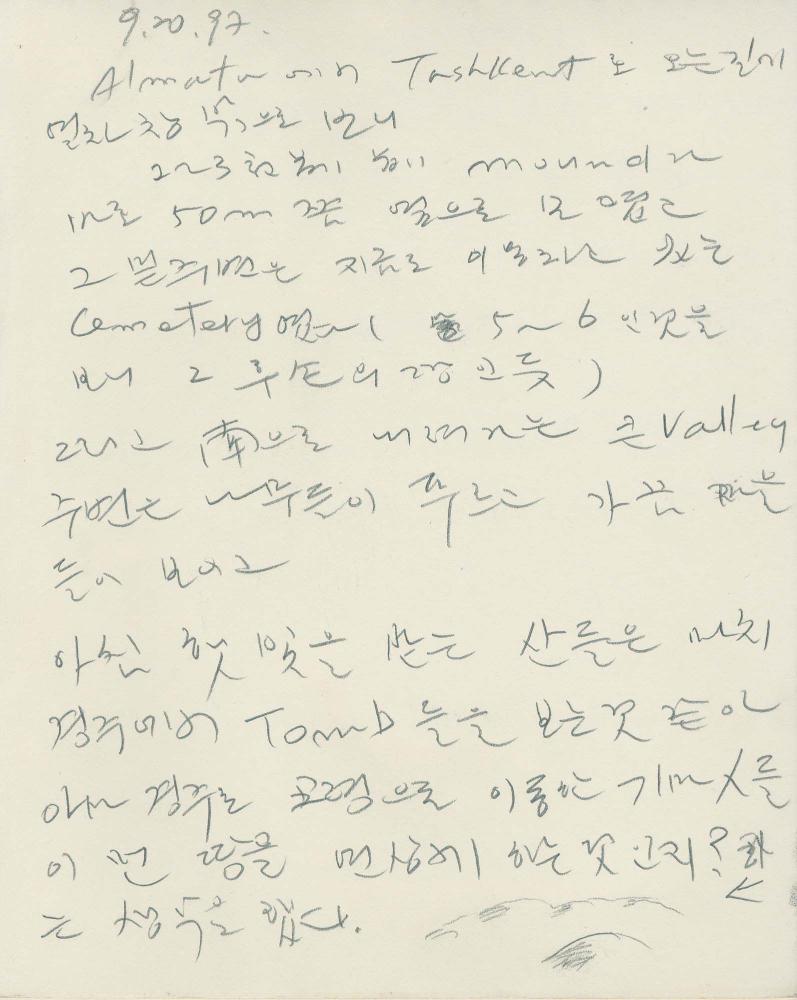 9.20.97.
Almata에서 Tashkent로 오는길에
열차 창 밖으로 보니
2~3천 mound가
서로 50m 쯤 옆으로
그 주변은 지금도 있는
Cemetery 였고 ( 5~6 인것을
보니 그 루트의 인듯)
그리고 南으로 내려가는 큰 Valley
주변은 나무들이 푸르고 가끔
들이 보이고
아침 햇빛을 받는 산들은 마치
경주에서 Tomb들을 보는것 같아
아마 경주로 고령으로 이동한 기마人들
이 먼 땅을 하는것 인지?
는 생각을 했다.